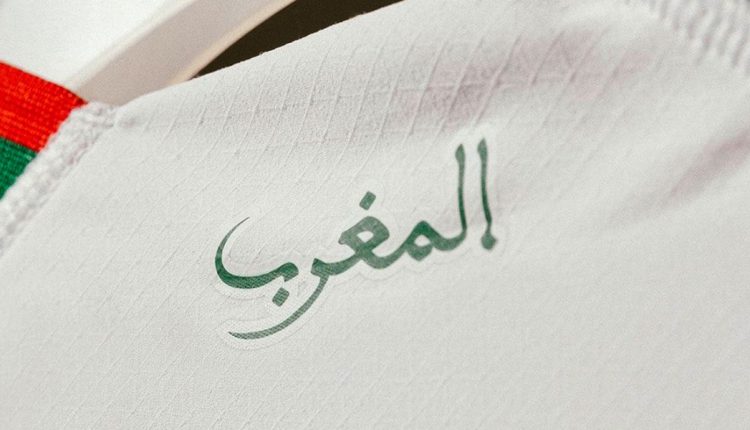 المغرب